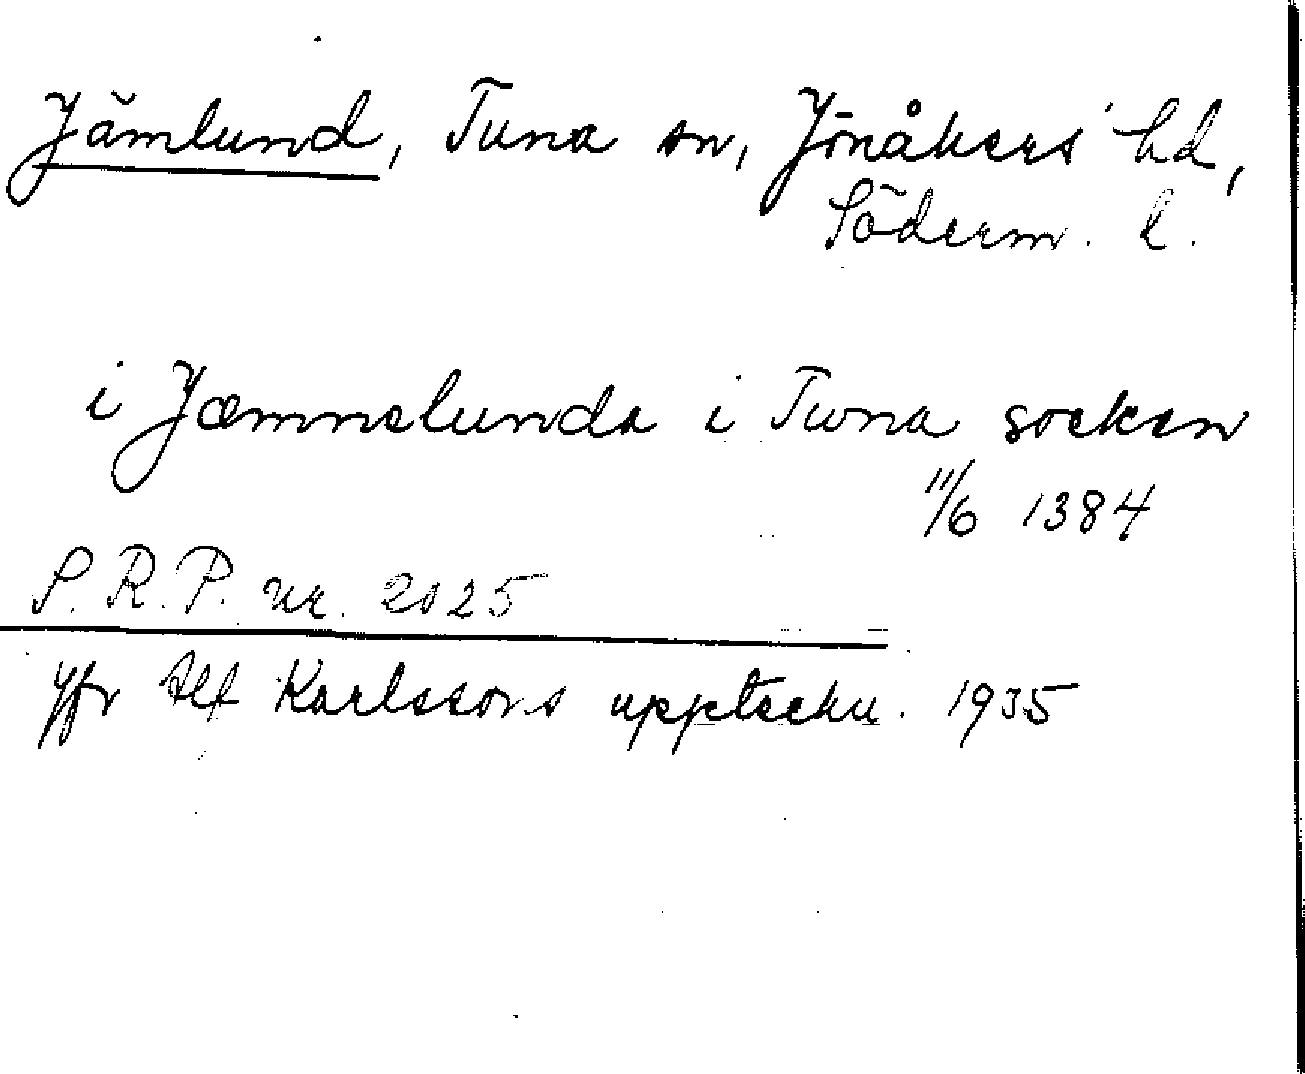 Jämlund, Tuna sn, Jönåkers hd,
Söderm. l.
i Jæmnelunda i Twna soken
11/6 1384
S. R. P. nr. 2025
Jfr Alf Karlssons uppteckn. 1935